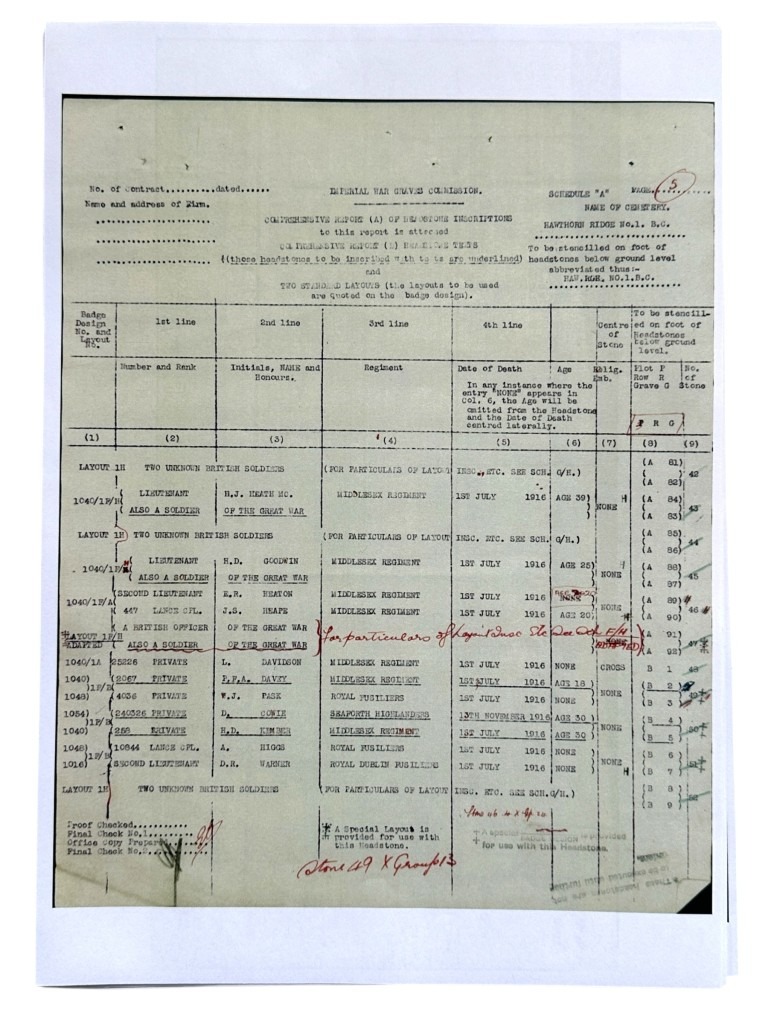 No. of Contract..........dated...... IMPERIAL WAR GRAVES COMMISSION. SCHEDULE "A" PAGE...5.......
Name and address of Firm. NAME OF CEMETERY.
COMPREHENSIVE REPORT (A) OF HEADSTONE INSCRIPTIONS HAWTHORN RIDGE No.1. B.C.
to this report is attached
COMPREHENSIVE REPORT (B) HEADSTONE TEXTS To be stencilled on foot of
(those headstones to be inscribed with texts are underlined) headstones below ground level
and abbreviated thus:-
TWO STANDARD LAYOUTS (the layouts to be used HAW.RGH. NO.1.B.C.
are quoted on the badge design).
Badge Design No. and Layout No. 1st line 2nd line 3rd line 4th line Centre of Stone To be stencill-ed on foot of Headstones below ground level.
Number and Rank Initials, NAME and Honours. Regiment Date of Death Age Relig. Emb. Plot P Row R Grave G No. of Stone
In any instance where the entry "NONE" appears in Col. 6, the Age will be omitted from the Headstone and the Date of Death centred laterally.
P R G
(1) (2) (3) (4) (5) (6) (7) (8) (9)
LAYOUT 1H TWO UNKNOWN BRITISH SOLDIERS (FOR PARTICULARS OF LAYOUT INSC. ETC. SEE SCH. G/H.) (A 81)
(A 82) 42
1040/1F/H (LIEUTENANT H.J. HEATH MC. MIDDLESEX REGIMENT 1ST JULY 1916 AGE 39) NONE (A 84)
(ALSO A SOLDIER OF THE GREAT WAR (A 83) 43
LAYOUT 1H TWO UNKNOWN BRITISH SOLDIERS (FOR PARTICULARS OF LAYOUT INSC. ETC. SEE SCH. G/H.) (A 85)
(A 86) 44
1040/1F/H (LIEUTENANT H.D. GOODWIN MIDDLESEX REGIMENT 1ST JULY 1916 AGE 25) NONE (A 88)
(ALSO A SOLDIER OF THE GREAT WAR (A 87) 45
1040/1F/A (SECOND LIEUTENANT E.R. HEATON MIDDLESEX REGIMENT 1ST JULY 1916 NONE (A 89)
(447 LANCE CPL. J.S. HEAPE MIDDLESEX REGIMENT 1ST JULY 1916 AGE 20) NONE (A 90) 46
LAYOUT 1F/H (A BRITISH OFFICER OF THE GREAT WAR for particulars of layout Insc Etc See Sch F/H (A 91)
ADAPTED (ALSO A SOLDIER OF THE GREAT WAR (A 92) 47
1040/1A 25226 PRIVATE L. DAVIDSON MIDDLESEX REGIMENT 1ST JULY 1916 NONE CROSS B 1 48
1040) 1F/B (2067 PRIVATE P.F.A. DAVEY MIDDLESEX REGIMENT 1ST JULY 1916 AGE 18) NONE (B 2)
1048) (4036 PRIVATE W.J. PASK ROYAL FUSILIERS 1ST JULY 1916 NONE (B 3) 49
1054) 1F/B (240326 PRIVATE D. COWIE SEAFORTH HIGHLANDERS 13TH NOVEMBER 1916 AGE 30) NONE (B 4)
1040) (258 PRIVATE H.D. KEMBER MIDDLESEX REGIMENT 1ST JULY 1916 AGE 30 (B 5) 50
1048) 1F/B (10844 LANCE CPL. A. HIGGS ROYAL FUSILIERS 1ST JULY 1916 NONE) NONE (B 6)
1016) (SECOND LIEUTENANT D.R. WARNER ROYAL DUBLIN FUSILIERS 1ST JULY 1916 NONE (B 7) 51
LAYOUT 1H TWO UNKNOWN BRITISH SOLDIERS (FOR PARTICULARS OF LAYOUT INSC. ETC. SEE SCH.G/H.) (B 8)
(B 9) 52
Proof Checked..............
Final Check No.1...........
Office Copy Prepared
Final Check No.2
A Special Layout is
provided for use with
this Headstone.
for use with this Headstone.
Stone 49 X Group 13